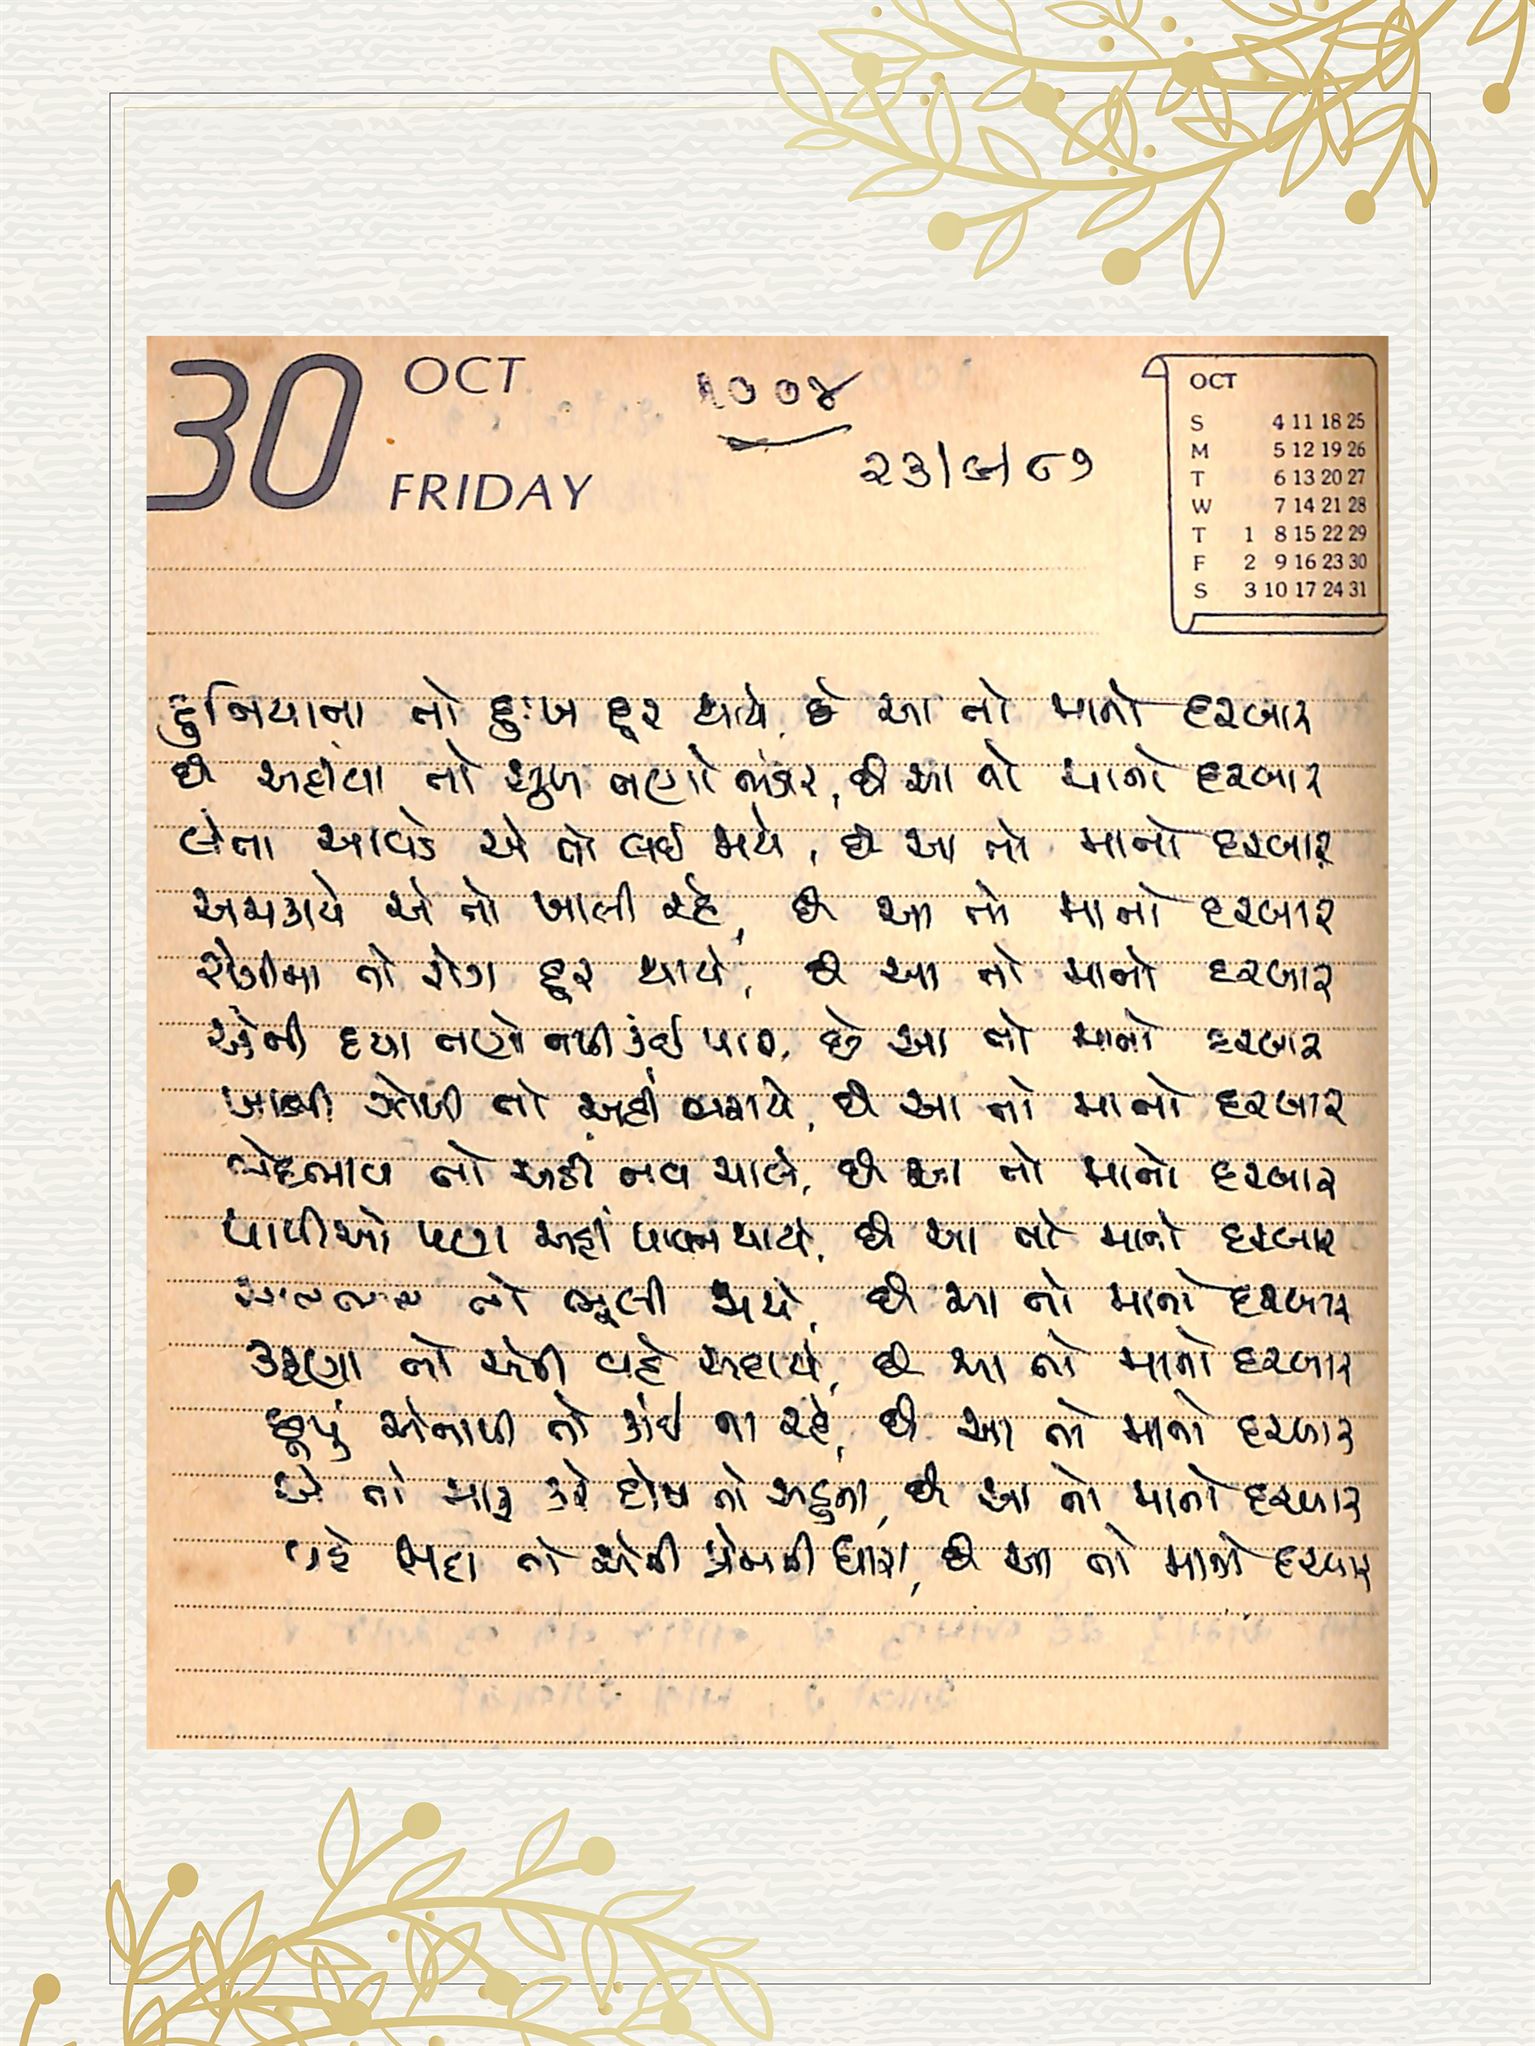 30
OCT
FRIDAY
૧૦૦૪
OCT
S 4 11 18 25
M 5 12 19 26
T 6 13 20 27
W 7 14 21 28
T 1 8 15 22 29
F 2 9 16 23 30
S 3 10 17 24 31
દુનિયાના તો દુઃખ દૂર થાયે, છે આ તો માનો દરબાર
છે અહીંયા તો સુખ તણો ભંડાર, છે આ તો માનો દરબાર
લેતા આવડે એ તો લઈ જાયે, છે આ તો માનો દરબાર
અચકાયે એ તો ખાલી રહે, છે આ તો માનો દરબાર
રોગીના તો રોગ દૂર થાયે, છે આ તો માનો દરબાર
એની દયા તણો નથી કંઈ પાર, છે આ તો માનો દરબાર
ખાલી ઝોળી તો અહીં ભરાયે, છે આ તો માનો દરબાર
ભેદભાવ તો અહીં નવ ચાલે, છે આ તો માનો દરબાર
પાપીઓ પણ અહીં પાવન થાયે, છે આ તો માનો દરબાર
તો ભૂલી જાયે, છે આ તો માનો દરબાર
કરુણા તો એની વહે સદાયે, છે આ તો માનો દરબાર
છૂપું એનાથી તો કાંઈ ના રહે, છે આ તો માનો દરબાર
એ તો માફ કરે દોષ તો સહુના, છે આ તો માનો દરબાર
વહે સદા તો એની પ્રેમની ધારા, છે આ તો માનો દરબાર